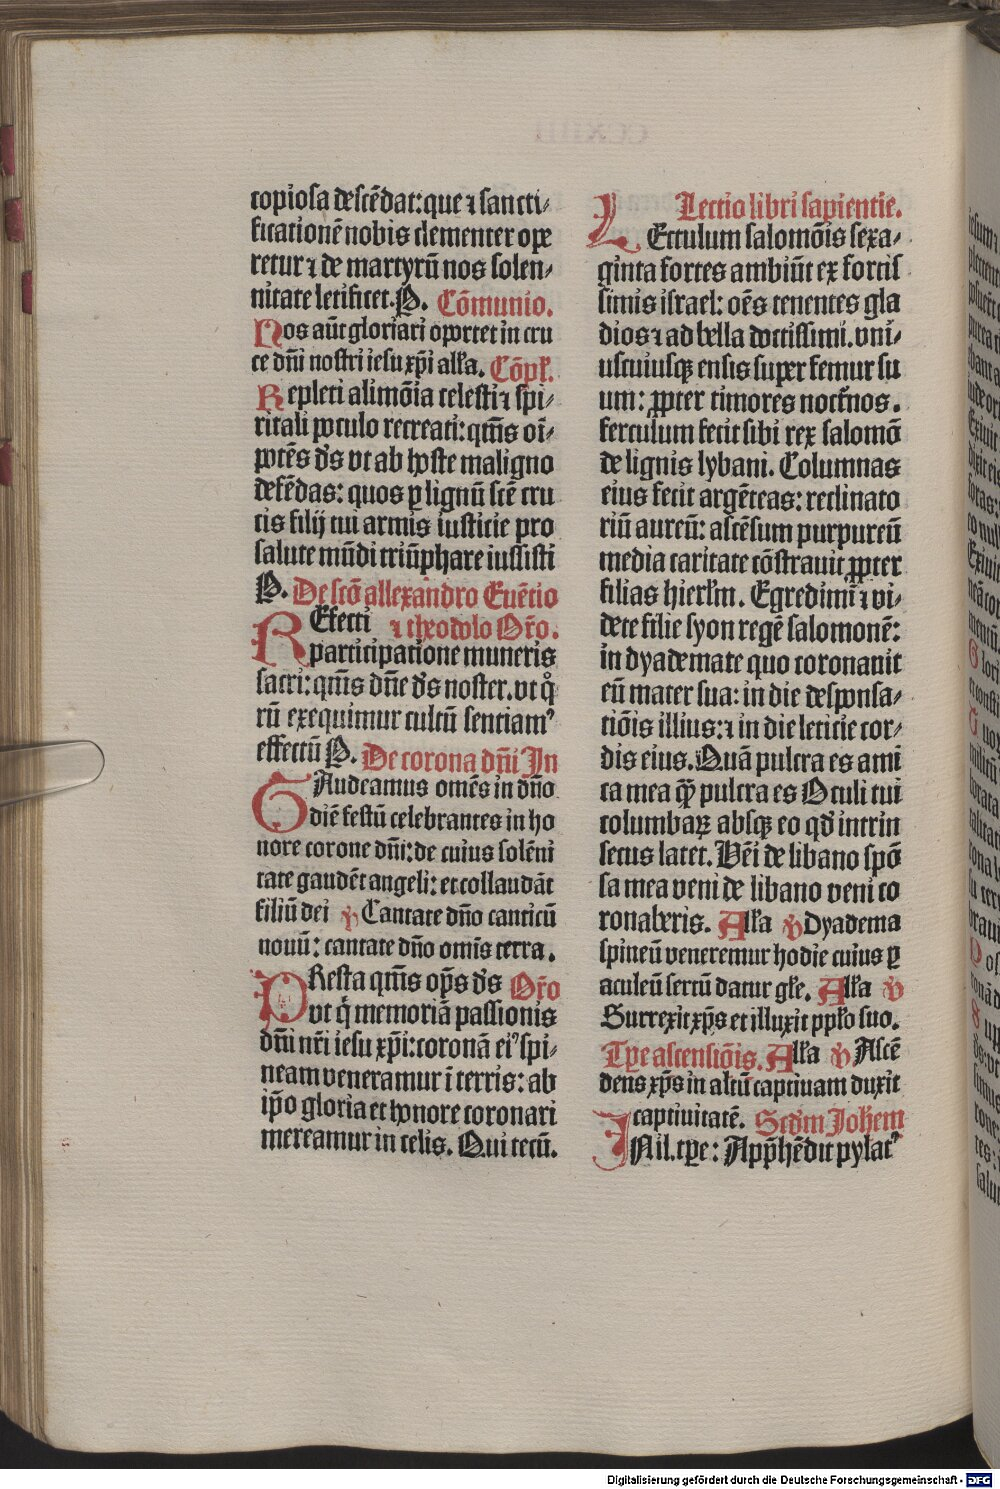 copiosa descēdat: que ⁊ sancti-
ficationē nobis clementer ope
retur ⁊ de martyrū nos solen-
nitate letificet. P. Cōmunio.
Nos aūt gloriari oportet in cru
ce dn̄i nostri iesu xp̄i alľa. Cōpľ.
Repleti alimōia celesti ⁊ spi-
ritali poculo recreati: qm̄s oī-
potēs ds̄ vt ab hoste maligno
defēdas: quos ꝑ lignū scē cru
cis filij tui armis iusticie pro
salute mūdi triūphare iussisti
P. De scō allexandro Euētio
REfecti ⁊ theodolo Or̄o.
participatione muneris
sacri: qm̄s dn̄e ds̄ noster. vt qͦ
rū exequimur cultū sentiamꝰ
effectū P. De corona dn̄i In
GAudeamus omēs in dn̄o
diē festū celebrantes in ho
nore corone dn̄i: de cuius solēni
tate gaudēt angeli: et collaudāt
filiū dei ℣ Cantate dn̄o canticū
nouū: cantate dn̄o omīs terra.
PResta qm̄s op̄s ds̄ Or̄o
vt qͥ memoriā passionis
dn̄i nr̄i iesu xp̄i: coronā eiꝰ spi-
neam veneramur ī terris: ab
ip̄o gloria et honore coronari
mereamur in celis. Qui tecū.
Lectio libri sapientie.
LEctulum salomōis sexa-
ginta fortes ambiūt ex fortis
simis israel: oēs tenentes gla
dios ⁊ ad bella doctissimi. vni-
uscuiusqꝫ ensis super femur su
um: ꝓpter timores noctr̄nos.
ferculum fecit sibi rex salomō
de lignis lybani. Columnas
eius fecit argēteas: reclinato
riū aureū: ascēsum purpureū
media caritate cōstrauit ꝓpter
filias hierľm. Egredimī ⁊ vi-
dete filie syon regē salomonē:
in dyademate quo coronauit
eū mater sua: in die desponsa-
tiōis illius: ⁊ in die leticie cor-
dis eius. Quā pulcra es ami
ca mea qꝫ̄ pulcra es Oculi tui
columbaꝝ absqꝫ eo qd̄ intrin
secus latet. Vēi de libano spō
sa mea veni de libano veni co
ronaberis. Alľa ℣ Dyadema
spineū veneremur hodie cuius ꝑ
aculeū sertū datur gľe. Alľa ℣
Surrexit xp̄s et illuxit ppľo suo.
Tꝑe ascensiōis. Alľa ℣ Ascē
dens xp̄s in altū captiuam duxit
captiuitatē. Scd̄m Johem
INil. tꝑe: App̄hēdit pylatꝰ
Digitalisierung gefördert durch die Deutsche Forschungsgemeinschaft - DFG